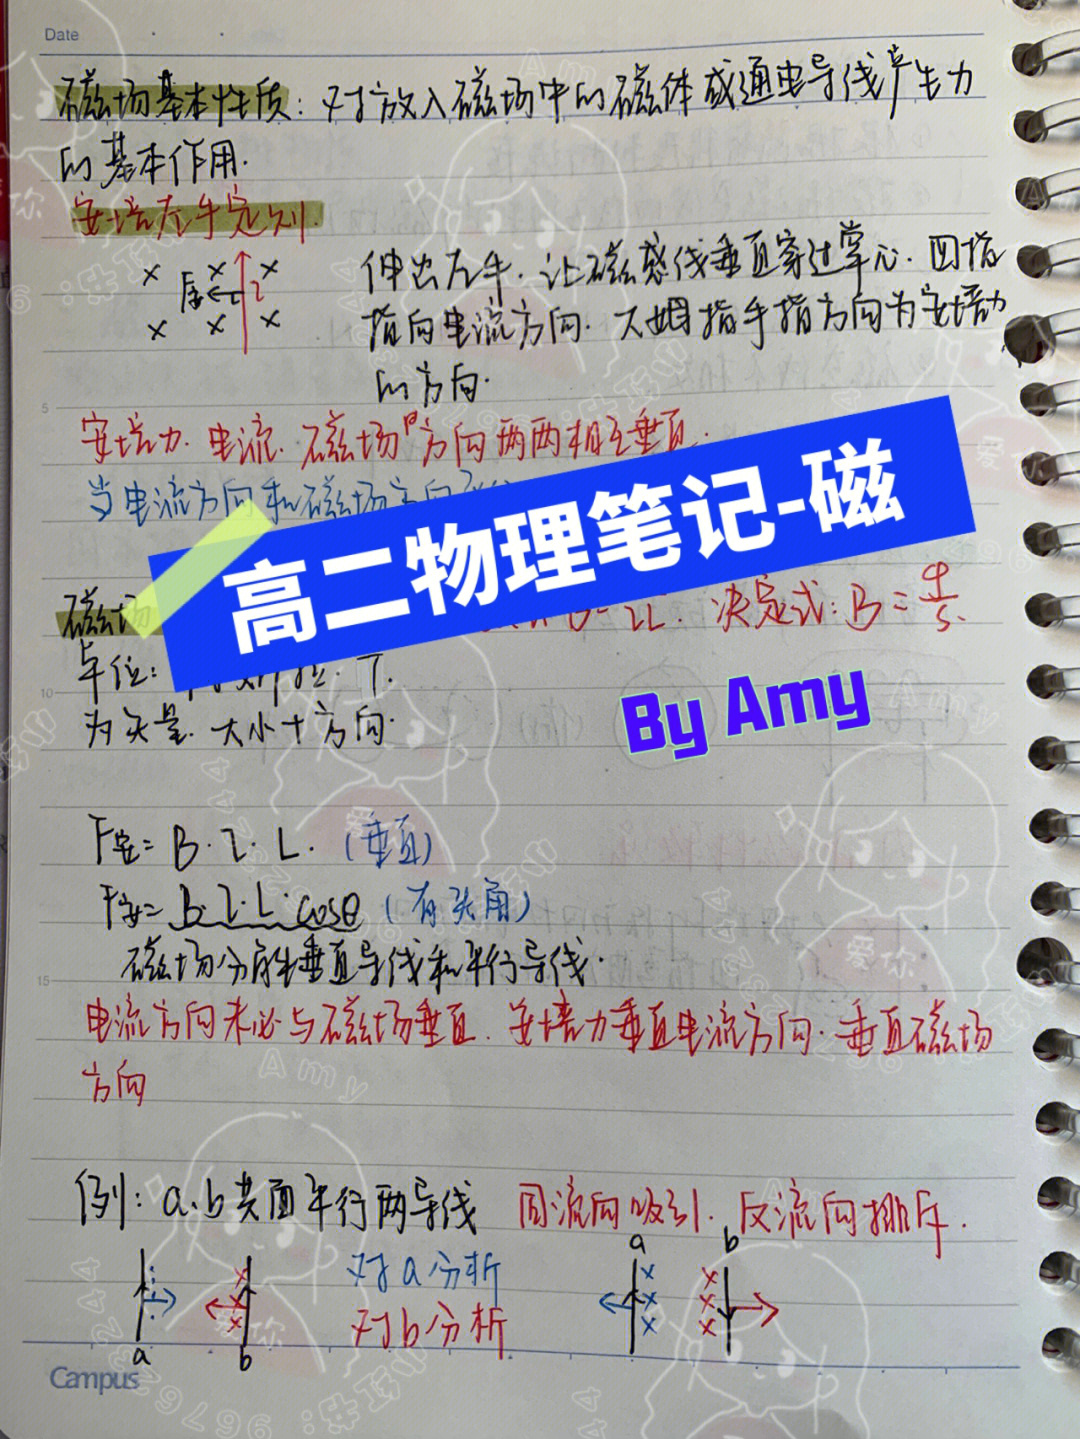 Date
磁场基本性质：对放入磁场中的磁体或通电导线产生力
的基本作用.
安培左手定则.
F安 I
伸出左手.让磁感线垂直穿过掌心.四指
指向电流方向.大姆指手指方向为安培力
的方向.
安培力.电流.磁场的方向两两相互垂直.
当电流方向和磁场方向
高二物理笔记-磁
磁场 IL.决定式:B=Φ/S.
单位: T.
By Amy
为矢量.大小+方向.
F安=B·I·L.(垂直)
F安=B·I·L·cosθ(有夹角)
磁场分解垂直导线和平行导线.
电流方向未必与磁场垂直.安培力垂直电流方向.垂直磁场
方向
例:a、b共面平行两导线 同流向吸引.反流向排斥.
对a分析
对b分析
a b
a b
5
10
15
Campus